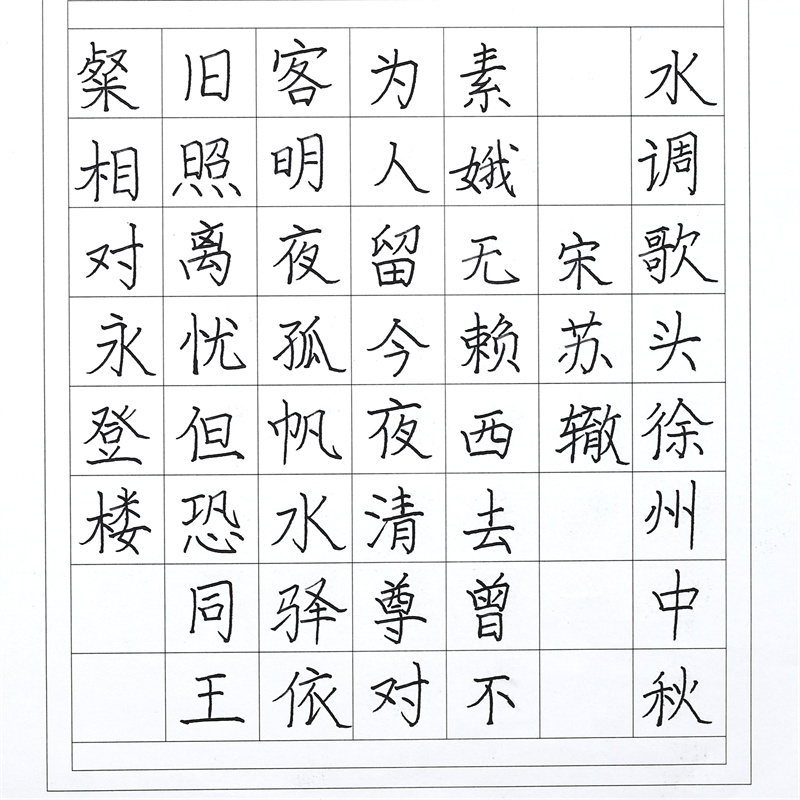 水调歌头徐州中秋
宋苏辙
素娥无赖西去曾不
为人留今夜清尊对
客明夜孤帆水驿依
旧照离忧但恐同王
粲相对永登楼